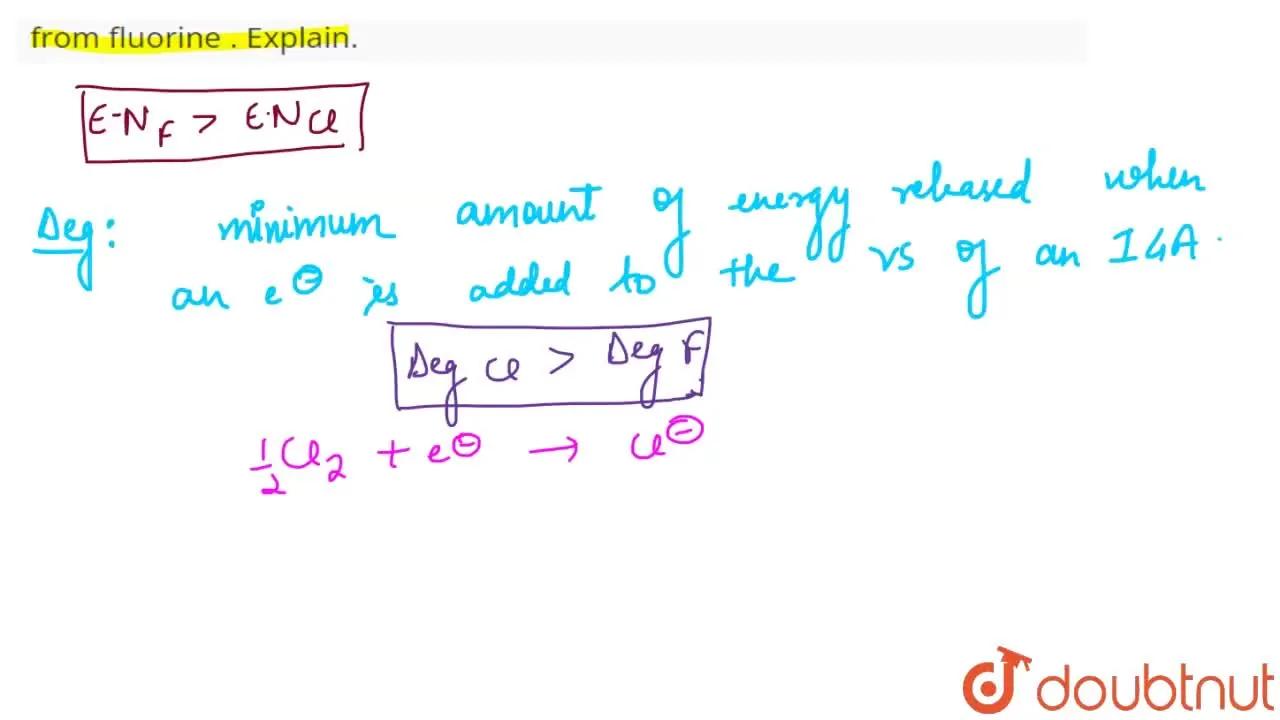 from fluorine . Explain.
E-N F > E.N Cl
Δeg : minimum amount of energy released when
an e⊖ is added to the vs of an IGA.
Δeg Cl > Δeg F
1/2 Cl2 + e⊖ → Cl⊖
doubtnut